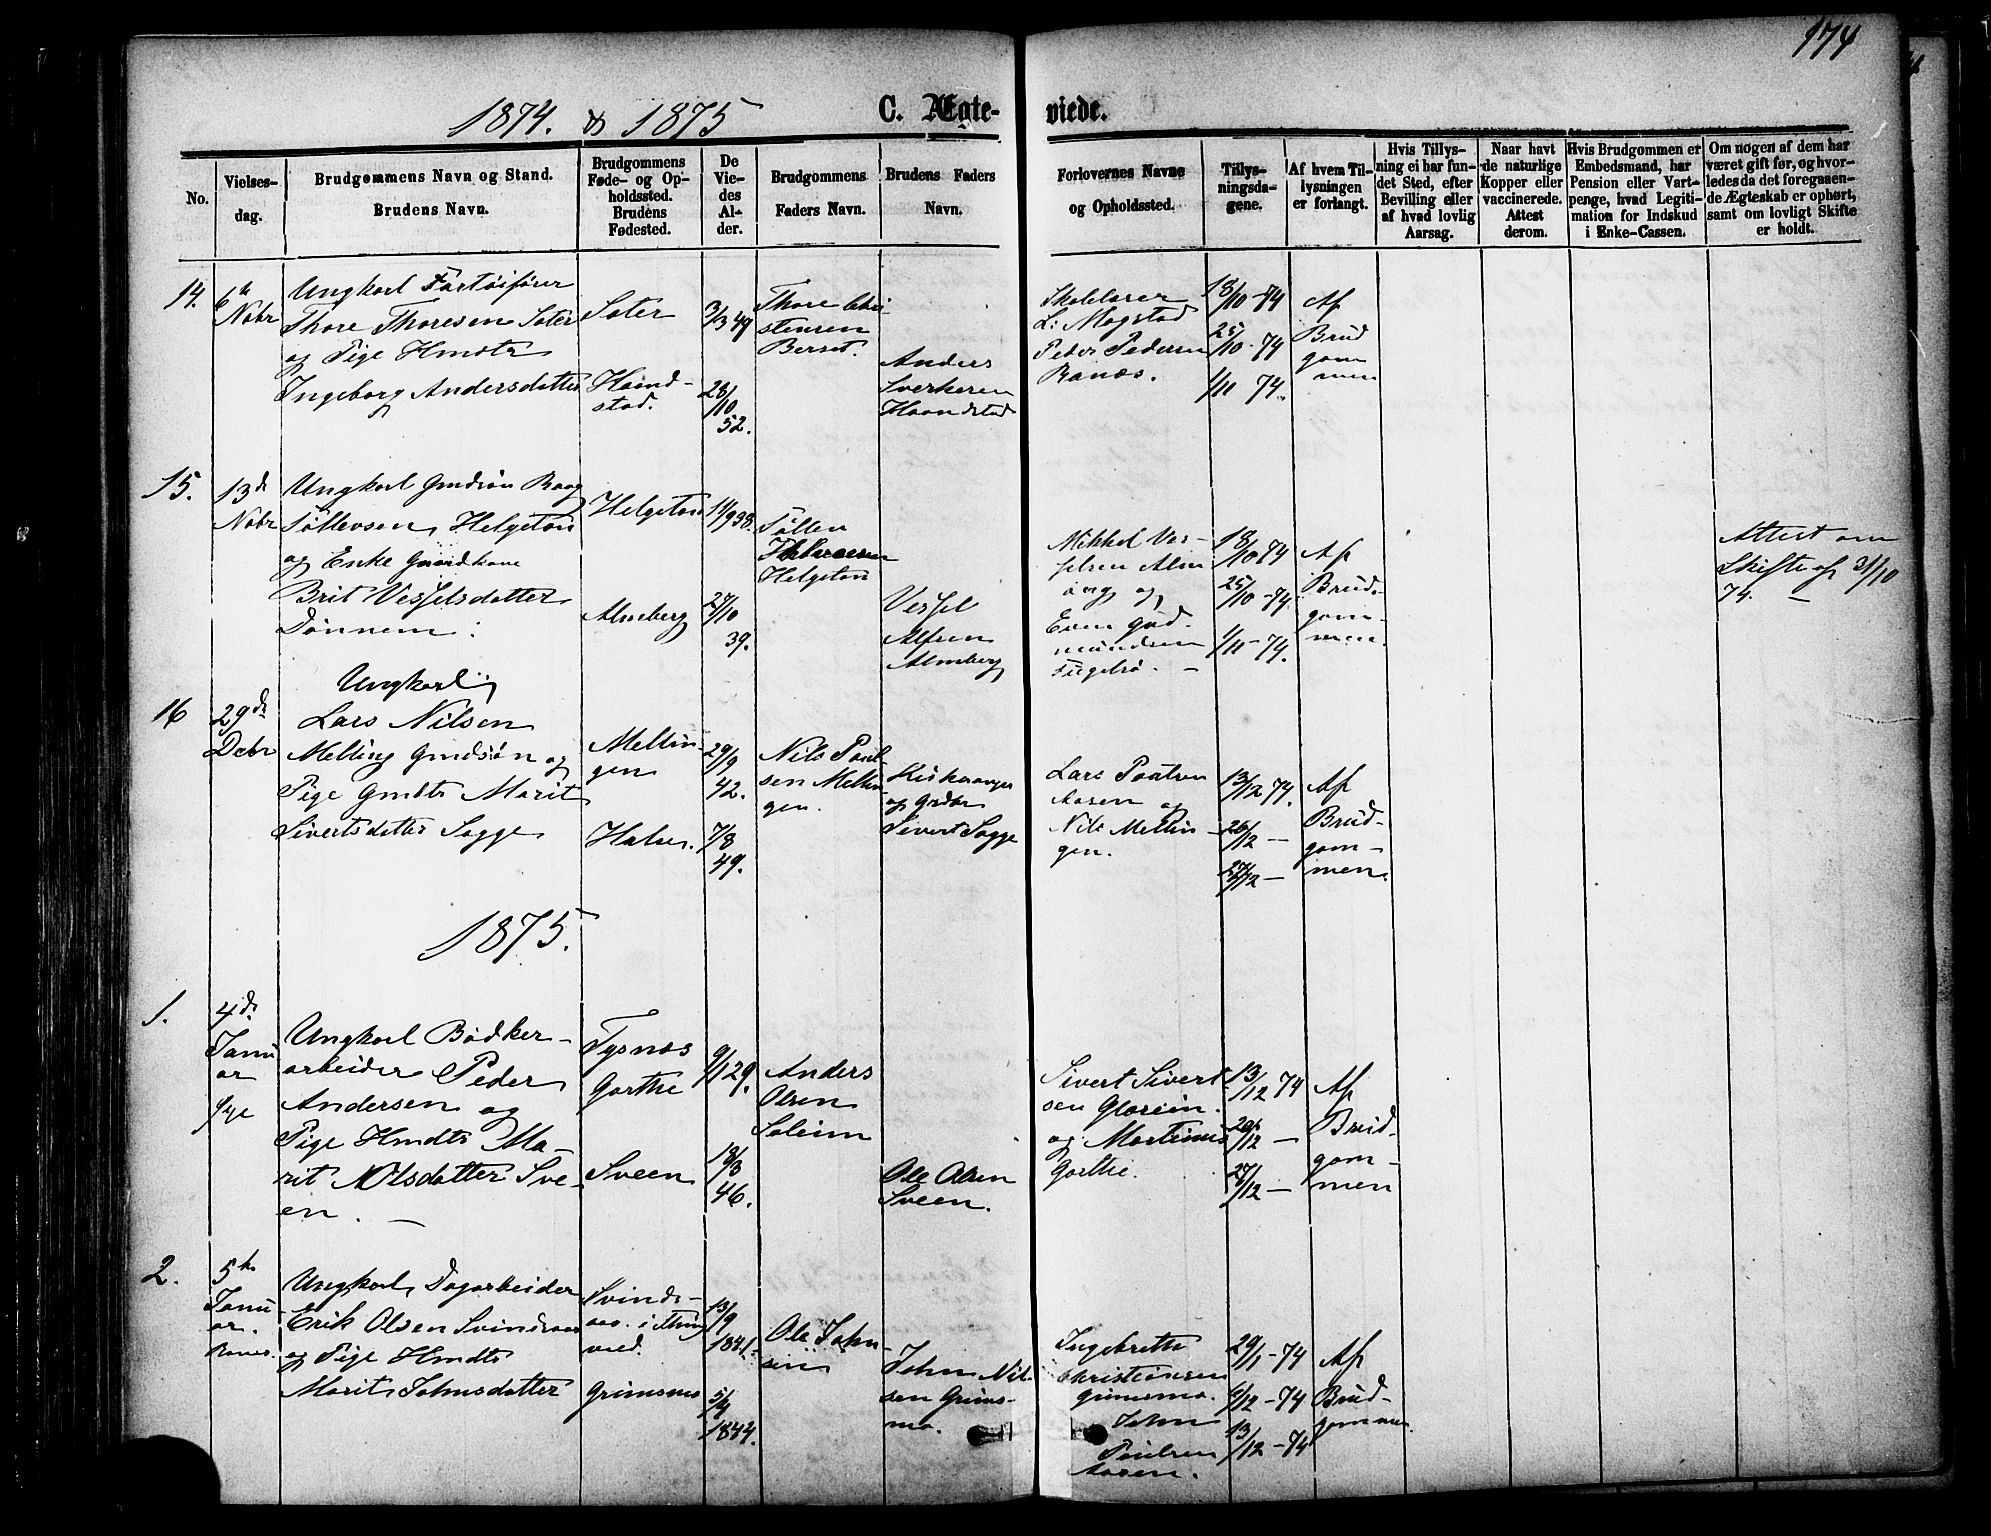 174
1874. & 1875
C. Ægte-
viede.
No.
Vielses-
dag.
Brudgommens Navn og Stand.
Brudens Navn.
Brudgommens
Føde- og Op-
holdssted.
Brudens
Fødested.
De
Vie-
des
Al-
der.
Brudgommens
Faders Navn.
Brudens Faders
Navn.
Forlovernes Navne
og Opholdssted.
Tillys-
ningsda-
gene.
Af hvem Til-
lysningen
er forlangt.
Hvis Tillys-
ning ei har fun-
det Sted, efter
Bevilling eller
af hvad lovlig
Aarsag.
Naar havt
de naturlige
Kopper eller
vaccinerede.
Attest
derom.
Hvis Brudgommen er
Embedsmand, har
Pension eller Vart-
penge, hvad Legiti-
mation for Indskud
i Enke-Cassen.
Om nogen af dem har
været gift før, og hvor-
ledes da det foregaaen-
de Ægteskab er ophørt,
samt om lovligt Skifte
er holdt.
14.
6te
Nobr
Ungkarl Fartøifører
Thore Thoresen Soter
og Pige Hmdtr
Ingeborg Andersdatter
Soter
Haand-
stad.
3/3 49
28/10
52.
Thore Chri-
stensen
Berset.
Anders
Sverkesen
Haandstad
Skolelærer
L: Magstad
Peder Pedersen
Ranæs.
18/10-74
25/10-74
1/11 74.
Af
Brud
gom
men
15.
13de
Nobr
Ungkarl Gmdsøn Raag
Søllevsen Helgeton
og Enke Gaardkone
Brit Vesselsdatter
Dønnem.
Helgeton
Almberg
11/9 38.
27/10
39.
Søllev
Helgeton
Vessel
Alfsen
Almberg
Mikkel Ves-
selsen Alm
og
Even Gud-
mundsen
18/10 74
25/10-74.
1/11-74.
Af
Brud-
gom-
men.
Attest om
Skifte af 31/10
74. —
16
29de
Debr
Ungkarl
Lars Nilsen
Melling Gmdsøn og
Pige Gmdtr Marit
Sivertsdatter Sogge
Mellin-
gen
Halse.
29/9
42.
7/8
49.
Nils Poul-
sen Mellin-
gen.
Kirkesanger
og Grdbr
Sivert Sogge
Lars Poulsen
Aasen og
Nils Mellin-
gen.
13/12 74.
26/12 —
27/12 —
Af
Brud-
gom-
men.
1875.
1.
4de
Janu
ar
Ungkarl Bødker-
arbeider Peder
Andersen og
Pige Hmdtr Ma-
rit Olsdatter Sve-
en. —
Tysnæs
Garthe
Sveen
9/1 29.
18/3
46.
Anders
Olsen
Soleim
Ole Olsen
Sveen.
Sivert Sivert
sen Glæreim.
og Martinus
Garthe.
13/12 74
20/12 —
27/12 —
Af
Brud-
gom-
men
2.
5te
Janu
ar.
Ungkarl Dagarbeider
Erik Olsen Svindsaas
og Pige Hmdtr
Marit Johnsdatter
Svinds-
aas. i Thing
vold.
Grimsmo
13/9
1841.
5/4
1844.
Ole John-
sen
John Nil-
sen Grims-
mo.
Ingebrikt
Christiansen
Grimsmo.
John
Poulsen
Aasen.
29/1-74
6/12-74
13/12-74
Af
Brud-
gommen.